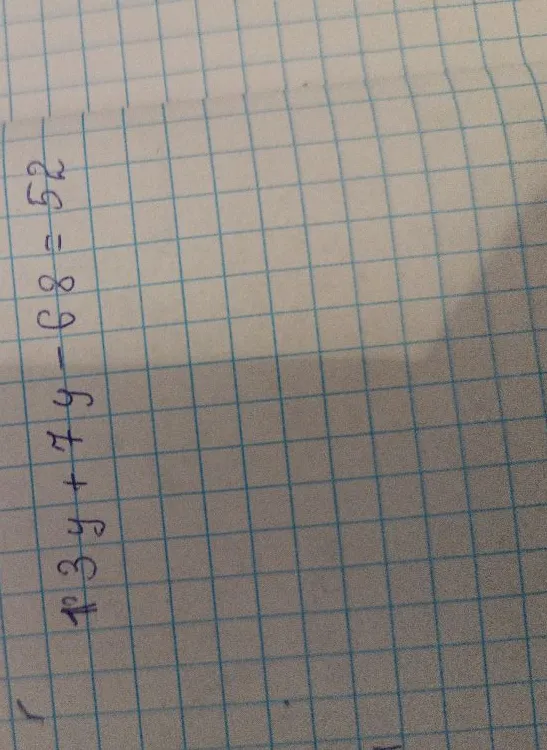 13y + 7y - 68 = 52